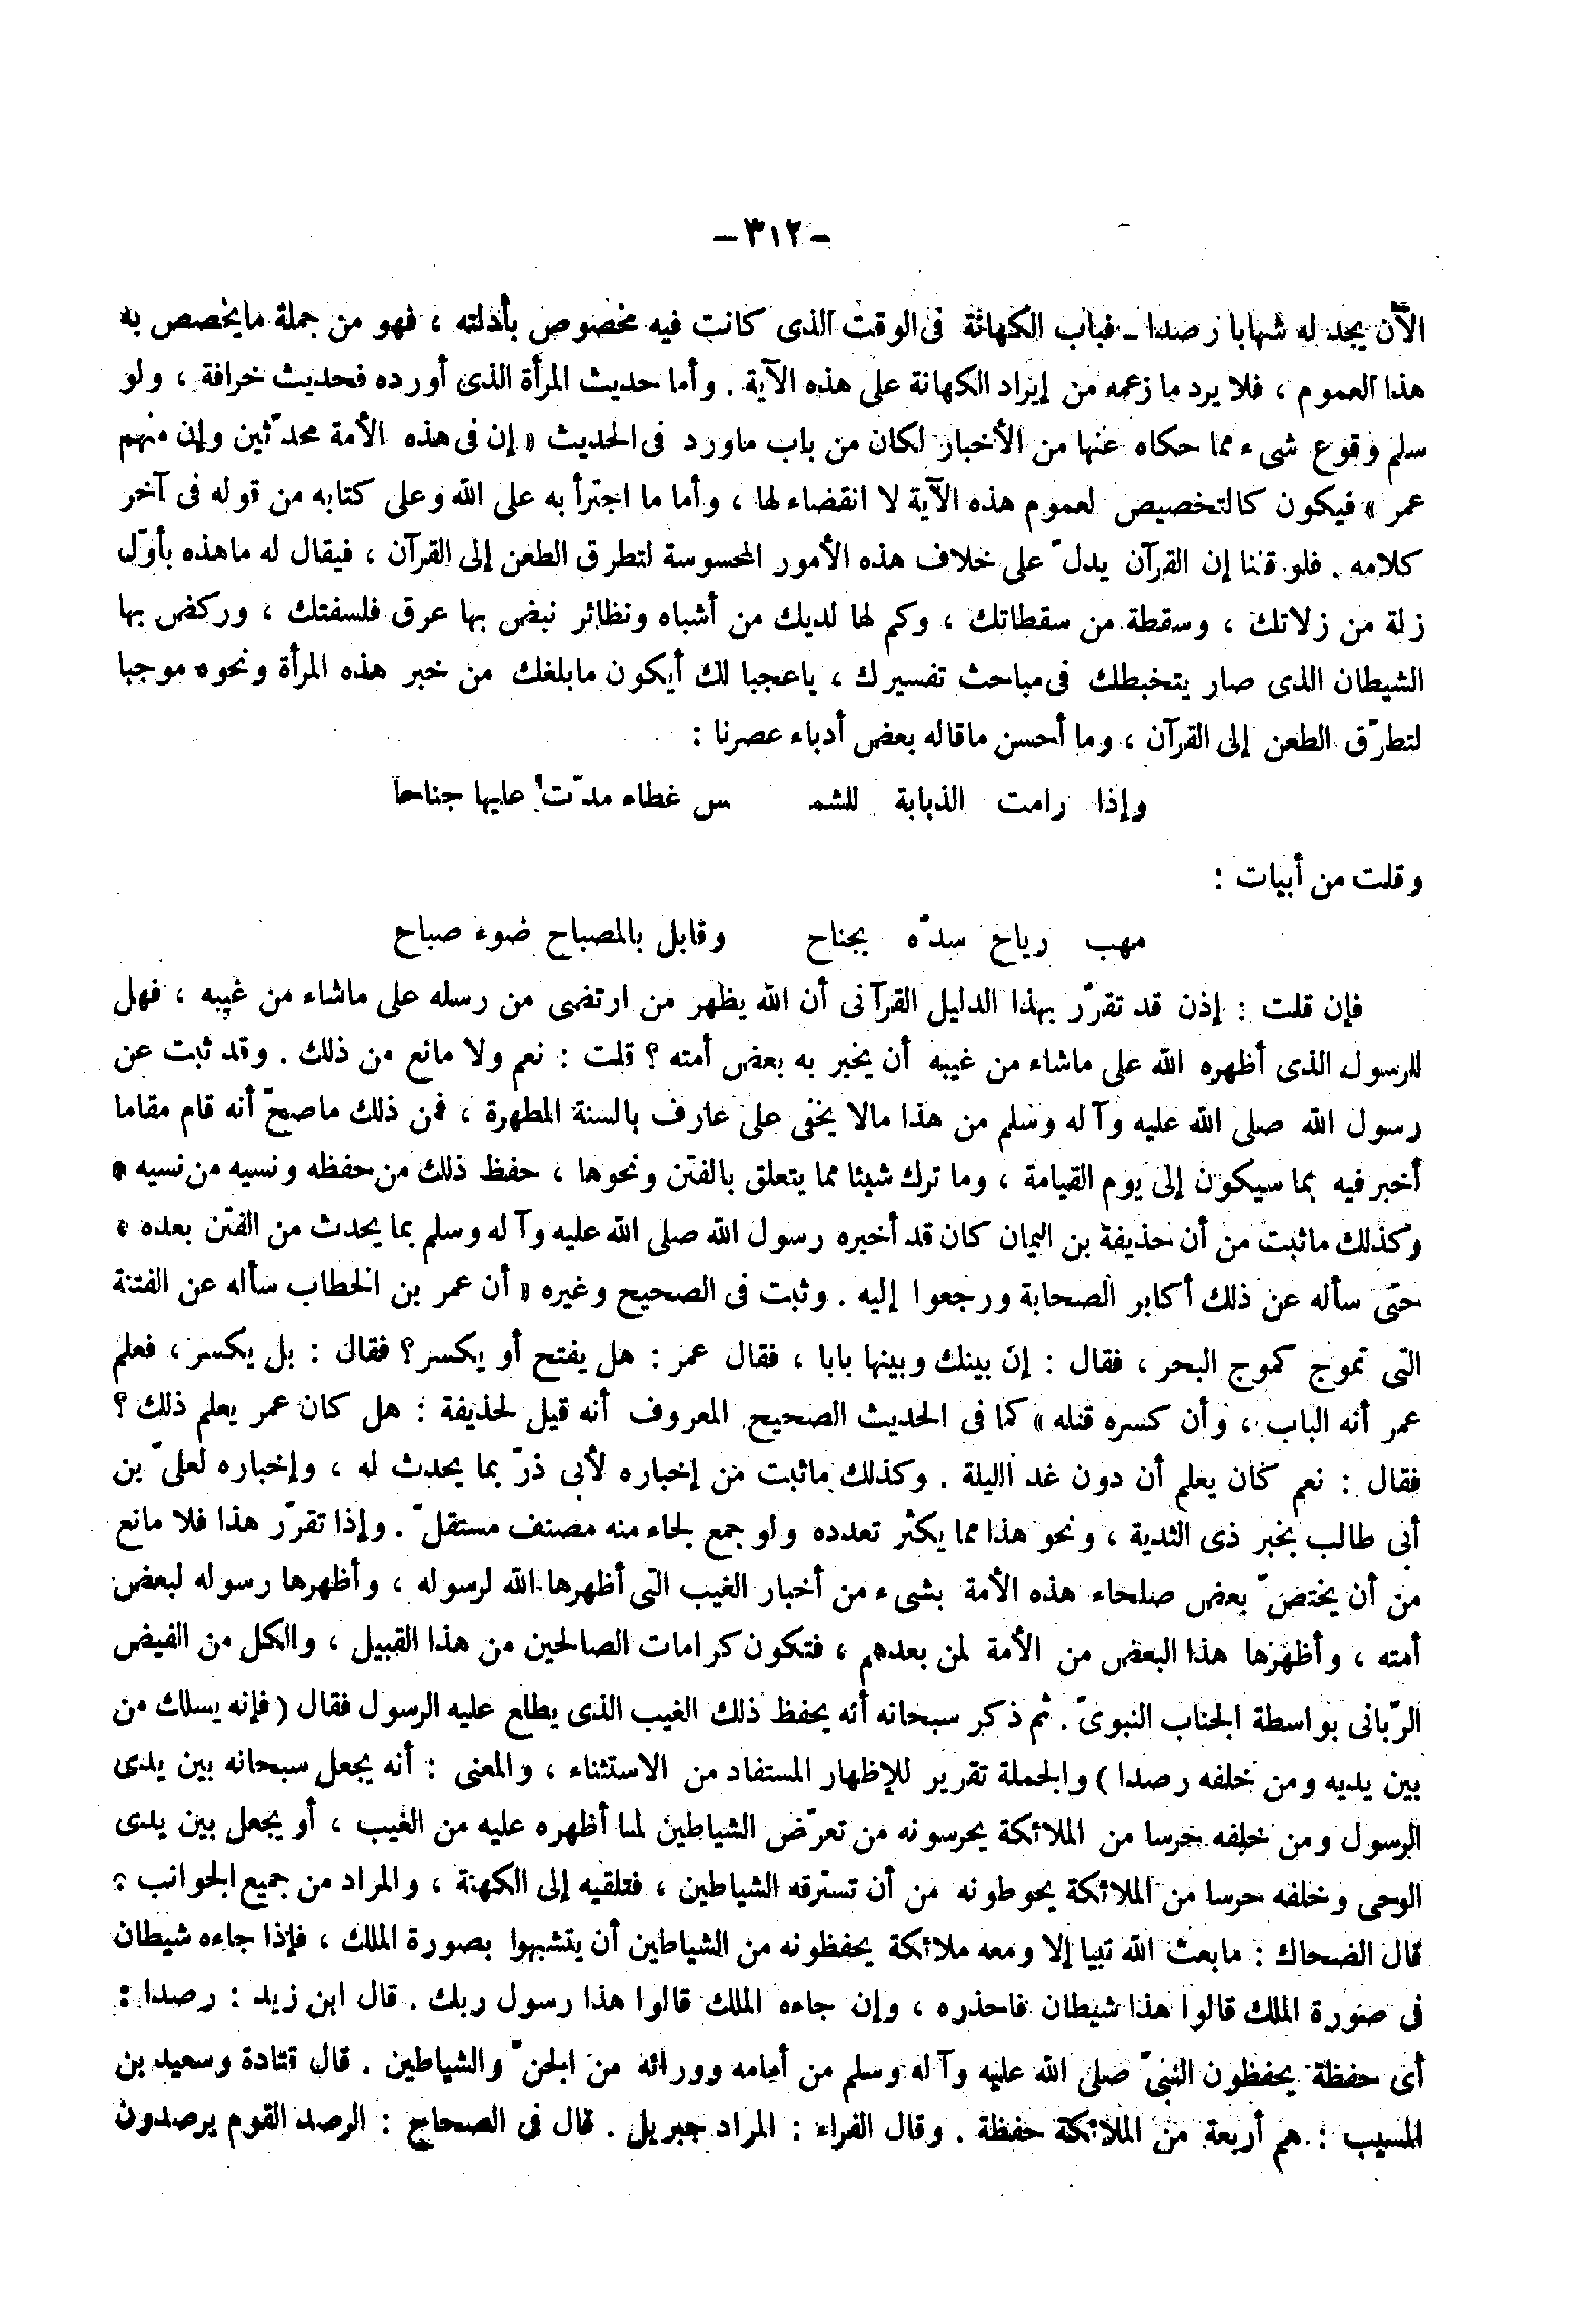 - ٣١٢ -
الآن يجد له شهابا رصدا ـ فباب الكهانة فى الوقت الذى كانت فيه مخصوص بأدلته ، فهو من جملة مايخصص به
هذا العموم ، فلا يرد ما زعمه من إيراد الكهانة على هذه الآية . وأما حديث المرأة الذى أورده فحديث خرافة ، ولو
سلم وقوع شىء مما حكاه عنها من الأخبار لكان من باب ماورد فى الحديث « إن فى هذه الأمة محدّثين وإن منهم
عمر » فيكون كالتخصيص لعموم هذه الآية لا انقضاء لها ، وأما ما اجترأ به على الله وعلى كتابه من قوله فى آخر
كلامه . فلو قلنا إن القرآن يدلّ على خلاف هذه الأمور المحسوسة لتطرق الطعن إلى القرآن ، فيقال له ماهذه بأوّل
زلة من زلاتك ، وسقطة من سقطاتك ، وكم لها لديك من أشباه ونظائر نبض بها عرق فلسفتك ، وركض بها
الشيطان الذى صار يتخبطك فى مباحث تفسيرك ، ياعجبا لك أيكون مابلغك من خبر هذه المرأة ونحوه موجبا
لتطرّق الطعن إلى القرآن ، وما أحسن ماقاله بعض أدباء عصرنا :
وإذا رامت الذبابة للشمـ س غطاء مدّت عليها جناحا
وقلت من أبيات :
مهب رياح سدّه بجناح وقابل بالمصباح ضوء صباح
فإن قلت : إذن قد تقرّر بهذا الدليل القرآنى أن الله يظهر من ارتضى من رسله على ماشاء من غيبه ، فهل
للرسول الذى أظهره الله على ماشاء من غيبه أن يخبر به بعض أمته ؟ قلت : نعم ولا مانع من ذلك . وقد ثبت عن
رسول الله صلى الله عليه وآله وسلم من هذا مالا يخفى على عارف بالسنة المطهرة ، فمن ذلك ماصحّ أنه قام مقاما
أخبر فيه بما سيكون إلى يوم القيامة ، وما ترك شيئا مما يتعلق بالفتن ونحوها ، حفظ ذلك من حفظه ونسيه من نسيه ،
وكذلك ماثبت من أن حذيفة بن اليمان كان قد أخبره رسول الله صلى الله عليه وآله وسلم بما يحدث من الفتن بعده ،
حتى سأله عن ذلك أكابر الصحابة ورجعوا إليه . وثبت فى الصحيح وغيره « أن عمر بن الخطاب سأله عن الفتنة
التى تموج كموج البحر ، فقال : إن بينك وبينها بابا ، فقال عمر : هل يفتح أو يكسر ؟ فقال : بل يكسر ، فعلم
عمر أنه الباب ، وأن كسره قتله » كما فى الحديث الصحيح المعروف أنه قيل لحذيفة : هل كان عمر يعلم ذلك ؟
فقال : نعم كان يعلم أن دون غد الليلة . وكذلك ماثبت من إخباره لأبى ذرّ بما يحدث له ، وإخباره لعلىّ بن
أبى طالب بخبر ذى الثدية ، ونحو هذا مما يكثر تعدده ولو جمع لجاء منه مصنف مستقلّ . وإذا تقرّر هذا فلا مانع
من أن يختصّ بعض صلحاء هذه الأمة بشىء من أخبار الغيب التى أظهرها الله لرسوله ، وأظهرها رسوله لبعض
أمته ، وأظهرها هذا البعض من الأمة لمن بعدهم ، فتكون كرامات الصالحين من هذا القبيل ، والكل من الفيض
الرّبانى بواسطة الجناب النبوىّ . ثم ذكر سبحانه أنه يحفظ ذلك الغيب الذى يطلع عليه الرسول فقال ( فإنه يسلك من
بين يديه ومن خلفه رصدا ) والجملة تقرير للإظهار المستفاد من الاستثناء ، والمعنى : أنه يجعل سبحانه بين يدى
الرسول ومن خلفه حرسا من الملائكة يحرسونه من تعرّض الشياطين لما أظهره عليه من الغيب ، أو يجعل بين يدى
الوحى وخلفه حرسا من الملائكة يحوطونه من أن تسترقه الشياطين ، فتلقيه إلى الكهنة ، والمراد من جميع الجوانب :
قال الضحاك : مابعث الله نبيا إلا ومعه ملائكة يحفظونه من الشياطين أن يتشبهوا بصورة الملك ، فإذا جاءه شيطان
فى صورة الملك قالوا هذا شيطان فاحذره ، وإن جاءه الملك قالوا هذا رسول ربك . قال ابن زيد : رصدا :
أى حفظة يحفظون النبىّ صلى الله عليه وآله وسلم من أمامه وورائه من الجنّ والشياطين . قال قتادة وسعيد بن
المسيب : هم أربعة من الملائكة حفظة . وقال الفراء : المراد جبريل . قال فى الصحاح : الرصد القوم يرصدون